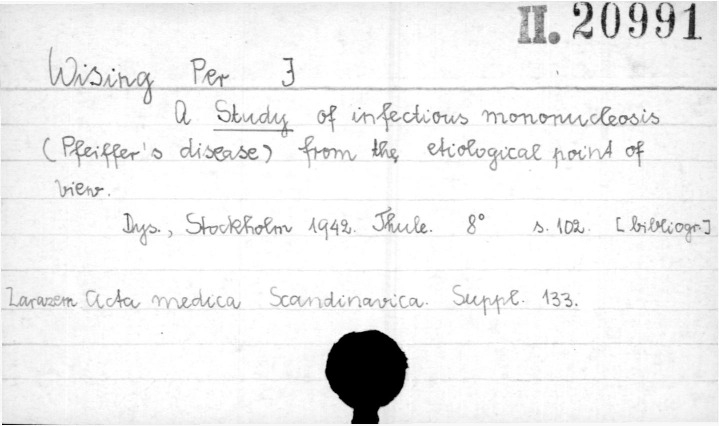 II. 20991
Wising Per J
A Study of infectious mononucleosis
(Pfeiffer's disease) from the etiological point of
view.
Dys., Stockholm 1942. Thule. 8° s. 102. [bibliogr.]
Zarazem Acta medica Scandinavica. Suppl. 133.